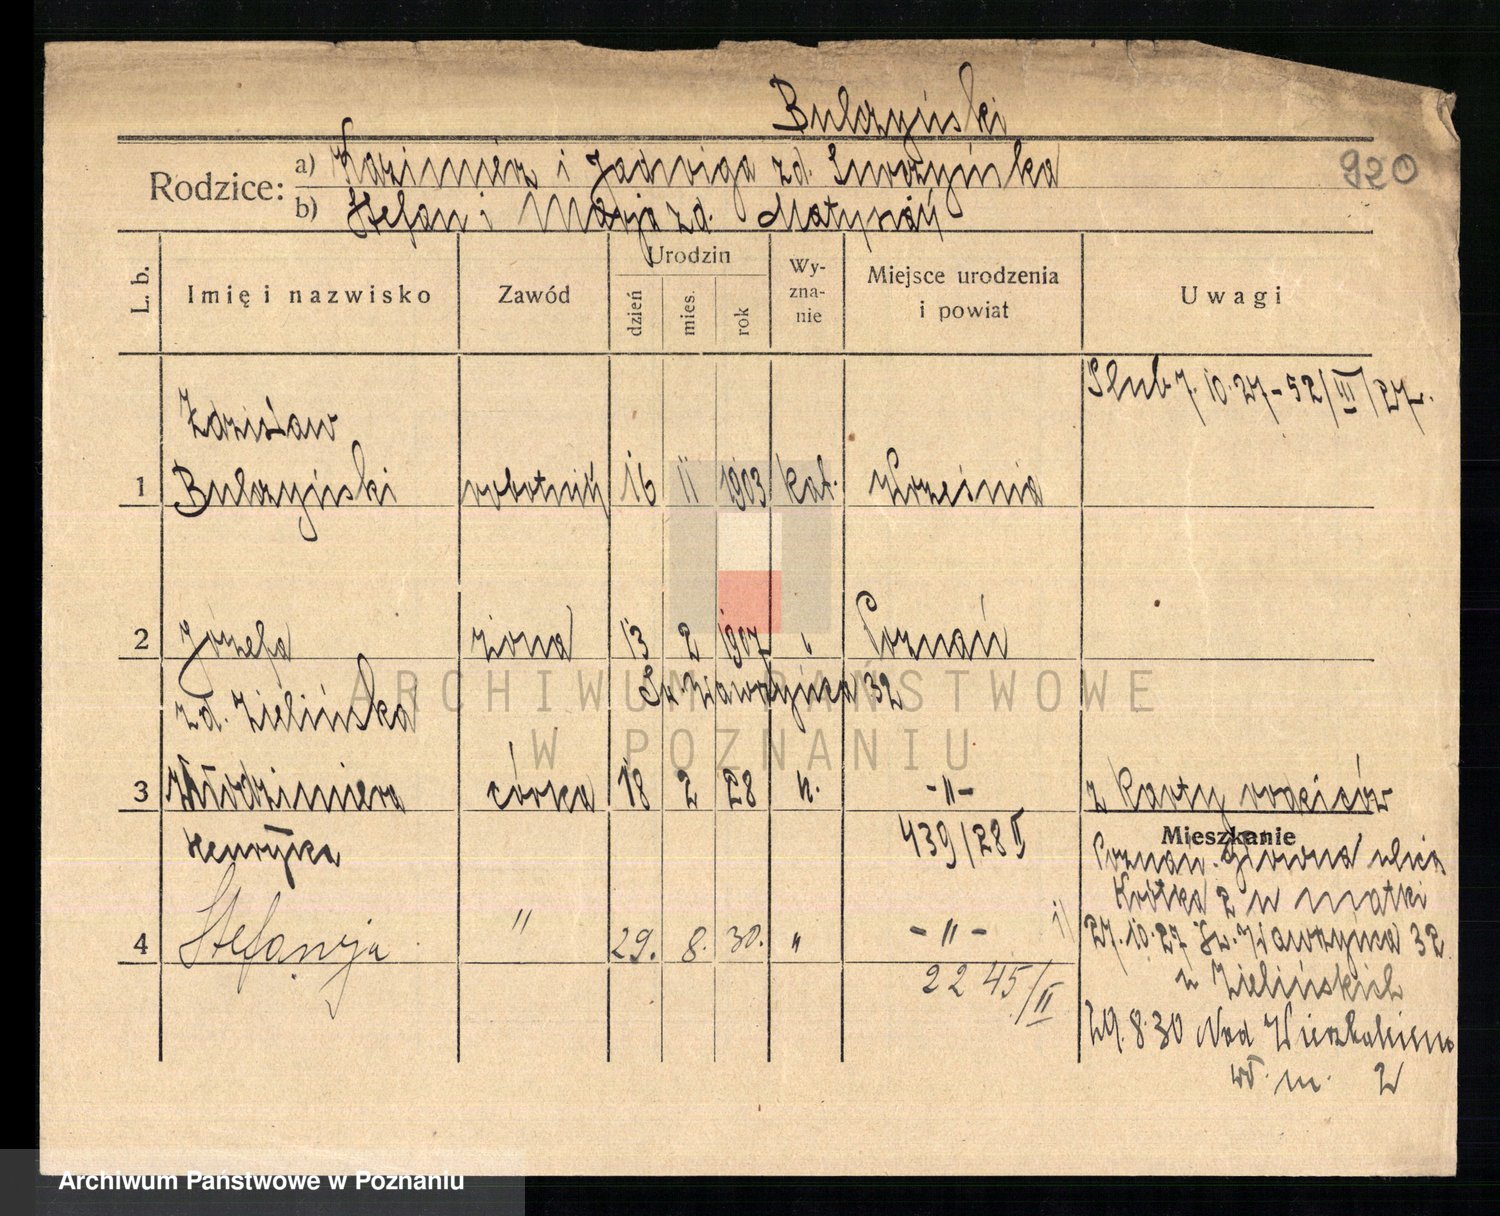 Bulczyński
920
Rodzice: a) Kazimierz i Jadwiga zd.
b) Stefan i Marja zd. Matysiak
L. b.
Imię i nazwisko
Zawód
Urodzin
dzień
mies.
rok
Wy-
zna-
nie
Miejsce urodzenia
i powiat
Uwagi
Ślub 7.10.27 - 52/III/27.
Zdzisław
1 Bulczyński robotnik 16 11 1903 kat. Września
2 Józefa żona 13 2 1907 " Poznań
zd. Zielińska
Św. Wawrzyńca 32
3 Włodzimiera córka 18 2 28 n. -"- z karty rodziców
Henryka
439/28 II
Mieszkanie
Poznań. Główna ulica
Krótka 2 u matki
4 Stefanja " 29. 8. 30. " -"-
27.10.27 Św. Wawrzyńca 32
2245/II
u Zielińskich
29.8.30 Nad Wierzbakiem
wł. m. 2
ARCHIWUM PAŃSTWOWE
W POZNANIU
Archiwum Państwowe w Poznaniu